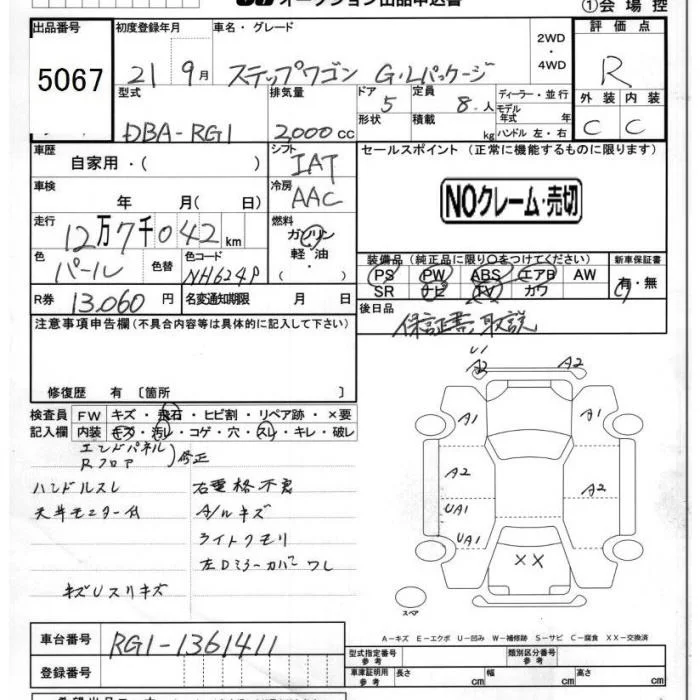 オークション出品申込書
①会場控
出品番号 初度登録年月 車名・グレード 2WD・4WD 評価点
5067 21 9月 ステップワゴン G・Lパッケージ R
型式 排気量 ドア 定員 ディーラー・並行 外装 内装
DBA-RG1 2000cc 5 8人 モデル年式 年 C C
形状 積載 kg ハンドル 左・右
車歴 自家用・( ) シフト IAT セールスポイント(正常に機能するものに限ります)
車検 年 月( 日) 冷房 AAC
NOクレーム・売切
走行 12万7千042km 燃料 ガソリン 軽油・( )
色 パール 色替 色コード NH624P
装備品(純正品に限り〇をつけてください) 新車保証書
PS PW ABS エアB AW 有・無
SR ナビ TV カワ
R券 13,060円 名変通知期限 月 日 後日品
保証書 取説
注意事項申告欄(不具合内容等は具体的に記入して下さい)
修復歴 有〔箇所 〕
検査員 FW キズ・飛石・ヒビ割・リペア跡・×要
記入欄 内装 キズ・汚レ・コゲ・穴・スレ・キレ・破レ
エンドパネル
Rフロア
修正
ハンドルスレ 右重格不良
天井モニター付 A/Wキズ
ライトクモリ
左Dミラーカバーワレ
キズUスリキズ
U1
A2 A2
A1 A1
A2 A2
UA1
UA1
××
スペア
A-キズ E-エクボ U-凹み W-補修跡 S-サビ C-腐食 XX-交換済
車台番号 RG1-1361411
型式指定番号 参考 類別区分番号 参考
登録番号 車庫証明用 参考 長さ cm 幅 cm 高さ cm